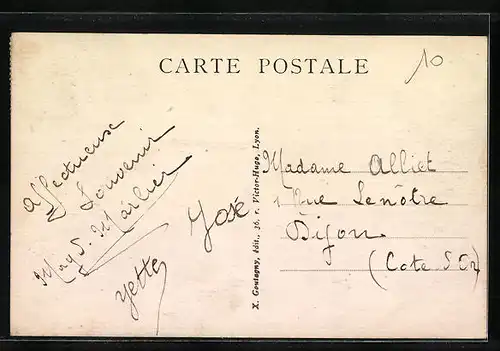 CARTE POSTALE
10
Affectueuse
Souvenir
May S. Marlier
José
Yette
X. Goutagny, édit., 36, r. Victor-Hugo, Lyon.
Madame Alliet
1 Rue Lenôtre
Dijon
(Cote d'Or)